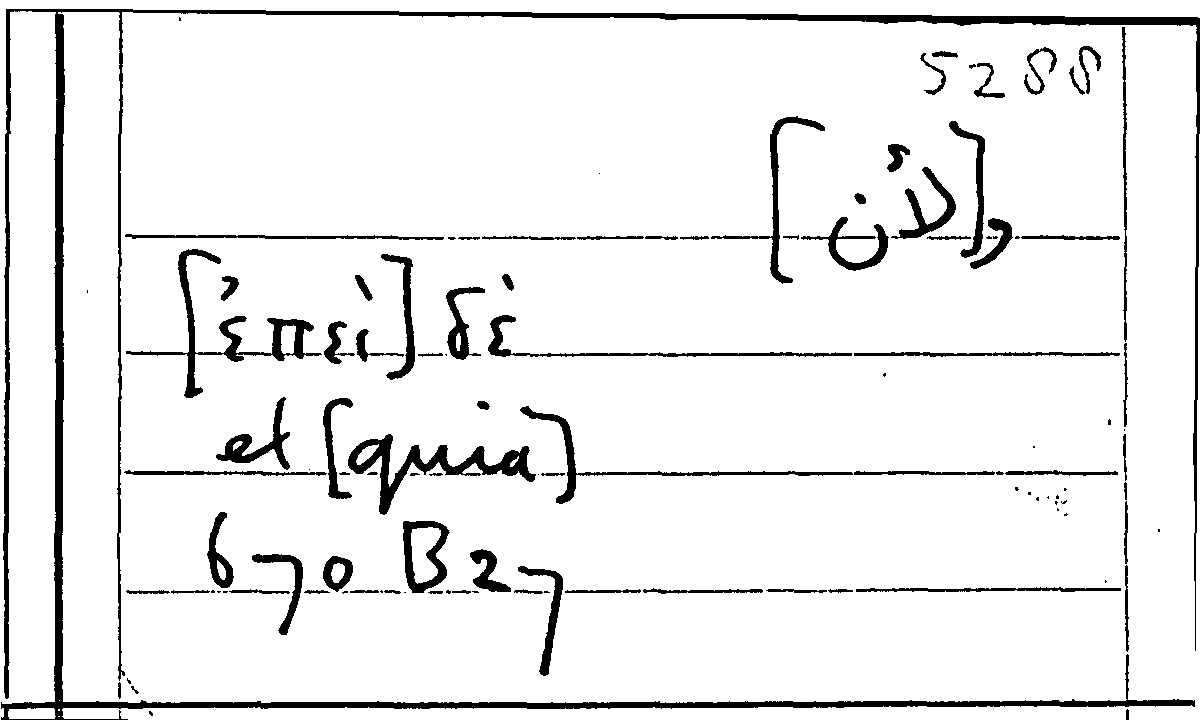 5288
و[لأن]
[ἐπεὶ] δὲ
et [quia]
670 B 27